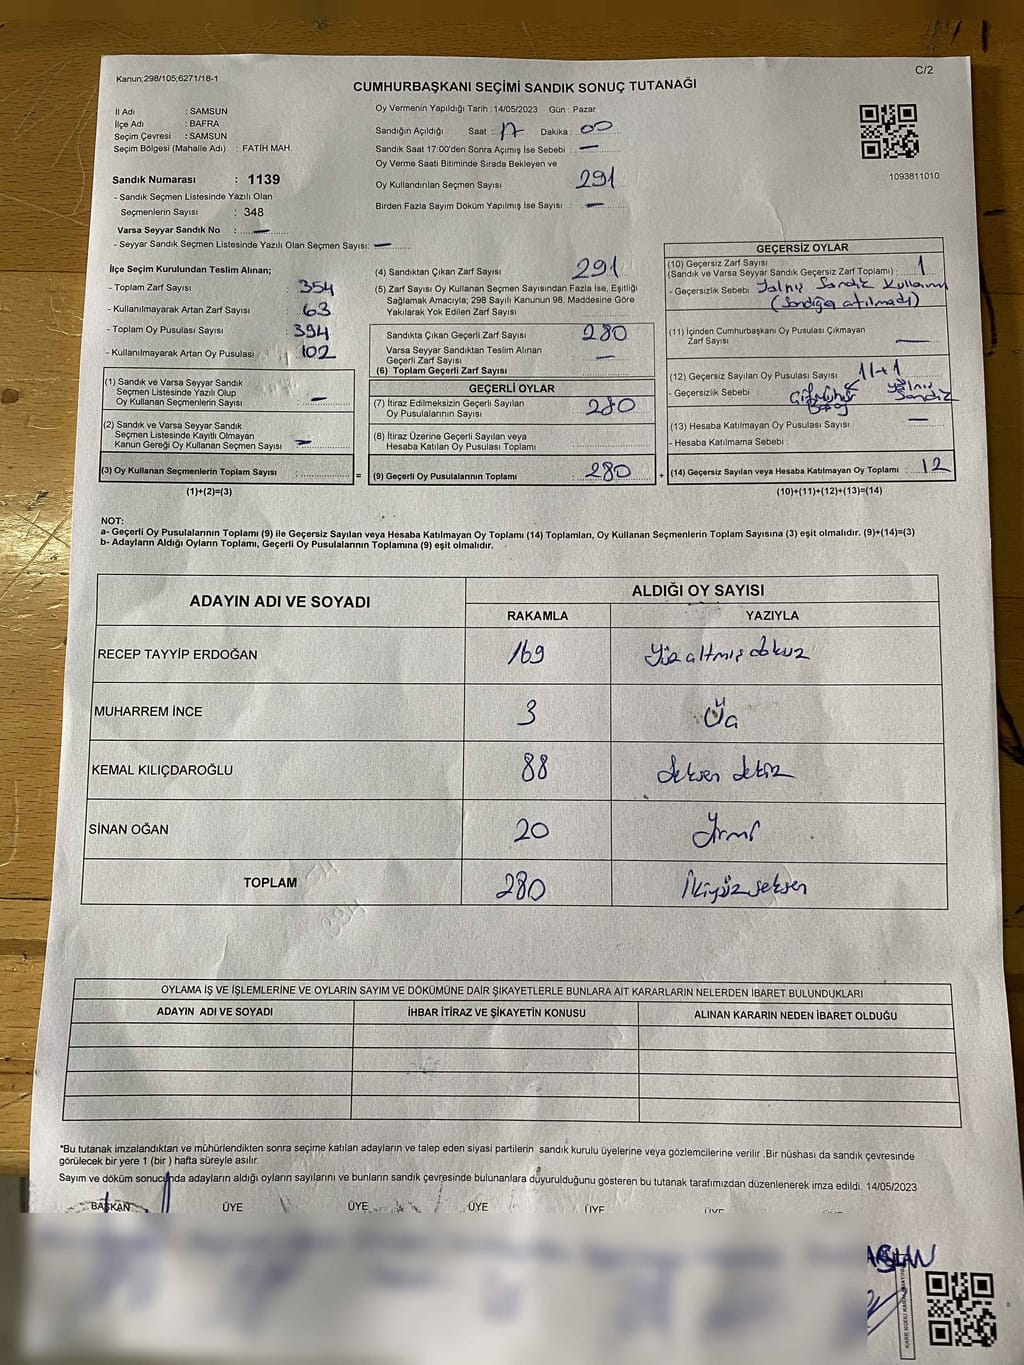 Kanun;298/105;6271/18-1
C/2
CUMHURBAŞKANI SEÇİMİ SANDIK SONUÇ TUTANAĞI
İl Adı : SAMSUN
İlçe Adı : BAFRA
Seçim Çevresi : SAMSUN
Seçim Bölgesi (Mahalle Adı) : FATİH MAH.
Sandık Numarası : 1139
- Sandık Seçmen Listesinde Yazılı Olan
Seçmenlerin Sayısı : 348
Varsa Seyyar Sandık No : —
- Seyyar Sandık Seçmen Listesinde Yazılı Olan Seçmen Sayısı: —
Oy Vermenin Yapıldığı Tarih : 14/05/2023 Gün : Pazar
Sandığın Açıldığı Saat : 17 Dakika : 00
Sandık Saat 17:00'den Sonra Açımış İse Sebebi : —
Oy Verme Saati Bitiminde Sırada Bekleyen ve
Oy Kullandırılan Seçmen Sayısı : 291
Birden Fazla Sayım Döküm Yapılmış İse Sayısı : —
1093811010
İlçe Seçim Kurulundan Teslim Alınan;
- Toplam Zarf Sayısı : 354
- Kullanılmayarak Artan Zarf Sayısı : 63
- Toplam Oy Pusulası Sayısı : 394
- Kullanılmayarak Artan Oy Pusulası : 102
(1) Sandık ve Varsa Seyyar Sandık
Seçmen Listesinde Yazılı Olup
Oy Kullanan Seçmenlerin Sayısı : —
(2) Sandık ve Varsa Seyyar Sandık
Seçmen Listesinde Kayıtlı Olmayan
Kanun Gereği Oy Kullanan Seçmen Sayısı : —
(3) Oy Kullanan Seçmenlerin Toplam Sayısı : =
(1)+(2)=(3)
(4) Sandıktan Çıkan Zarf Sayısı 291
(5) Zarf Sayısı Oy Kullanan Seçmen Sayısından Fazla İse, Eşitliği
Sağlamak Amacıyla; 298 Sayılı Kanunun 98. Maddesine Göre
Yakılarak Yok Edilen Zarf Sayısı :
Sandıkta Çıkan Geçerli Zarf Sayısı : 280
Varsa Seyyar Sandıktan Teslim Alınan
Geçerli Zarf Sayısı : —
(6) Toplam Geçerli Zarf Sayısı
GEÇERLİ OYLAR
(7) İtiraz Edilmeksizin Geçerli Sayılan
Oy Pusulalarının Sayısı : 280
(8) İtiraz Üzerine Geçerli Sayılan veya
Hesaba Katılan Oy Pusulası Toplamı
(9) Geçerli Oy Pusulalarının Toplamı : 280 +
GEÇERSİZ OYLAR
(10) Geçersiz Zarf Sayısı
(Sandık ve Varsa Seyyar Sandık Geçersiz Zarf Toplamı) : 1
- Geçersizlik Sebebi : Yalnış Sandık Kullanımı
(Sandığa atılmadı)
(11) İçinden Cumhurbaşkanı Oy Pusulası Çıkmayan
Zarf Sayısı : —
(12) Geçersiz Sayılan Oy Pusulası Sayısı : 11+1
- Geçersizlik Sebebi : Çift Mühür Yalnış Sandık
(13) Hesaba Katılmayan Oy Pusulası Sayısı : —
- Hesaba Katılmama Sebebi :
(14) Geçersiz Sayılan veya Hesaba Katılmayan Oy Toplamı : 12
(10)+(11)+(12)+(13)=(14)
NOT:
a- Geçerli Oy Pusulalarının Toplamı (9) ile Geçersiz Sayılan veya Hesaba Katılmayan Oy Toplamı (14) Toplamları, Oy Kullanan Seçmenlerin Toplam Sayısına (3) eşit olmalıdır. (9)+(14)=(3)
b- Adayların Aldığı Oyların Toplamı, Geçerli Oy Pusulalarının Toplamına (9) eşit olmalıdır.
ADAYIN ADI VE SOYADI ALDIĞI OY SAYISI
RAKAMLA YAZIYLA
RECEP TAYYİP ERDOĞAN 169 Yüz altmış dokuz
MUHARREM İNCE 3 Üç
KEMAL KILIÇDAROĞLU 88 Seksen sekiz
SİNAN OĞAN 20 Yirmi
TOPLAM 280 İkiyüzseksen
OYLAMA İŞ VE İŞLEMLERİNE VE OYLARIN SAYIM VE DÖKÜMÜNE DAİR ŞİKAYETLERLE BUNLARA AİT KARARLARIN NELERDEN İBARET BULUNDUKLARI
ADAYIN ADI VE SOYADI İHBAR İTİRAZ VE ŞİKAYETİN KONUSU ALINAN KARARIN NEDEN İBARET OLDUĞU
*Bu tutanak imzalandıktan ve mühürlendikten sonra seçime katılan adayların ve talep eden siyasi partilerin sandık kurulu üyelerine veya gözlemcilerine verilir .Bir nüshası da sandık çevresinde
görülecek bir yere 1 (bir ) hafta süreyle asılır.
Sayım ve döküm sonucunda adayların aldığı oyların sayılarını ve bunların sandık çevresinde bulunanlara duyurulduğunu gösteren bu tutanak tarafımızdan düzenlenerek imza edildi. 14/05/2023
BAŞKAN ÜYE ÜYE ÜYE ÜYE ÜYE